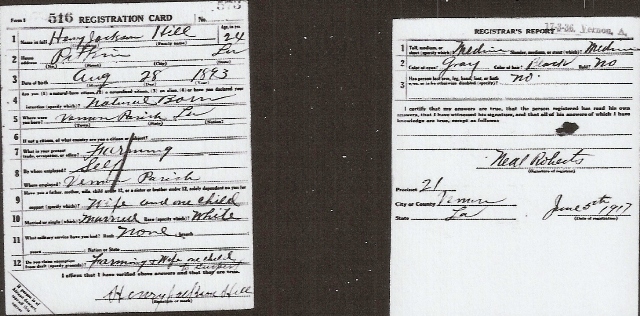 Form 1 516 REGISTRATION CARD No.
1 Name in full Henry Jackson Hill 24
(Family name) Age, in yrs.
2 Home address Pitkin La
3 Date of birth Aug 28 1893
4 Are you (1) a natural-born citizen, (2) a naturalized citizen, (3) an alien, (4) or have you declared your
intention (specify which)? Natural Born
5 Where were you born? Vernon Parish La
(Town) (State) (Nation)
6 If not a citizen, of what country are you a citizen or subject?
7 What is your present trade, occupation, or office? Farming
8 By whom employed? Self
Where employed? Vernon Parish
9 Have you a father, mother, wife, child under 12, or a sister or brother under 12, solely dependent on you for
support (specify which)? Wife and one child
10 Married or single (which)? Married Race (specify which)? White
11 What military service have you had? Rank None branch
years Nation or State
12 Do you claim exemption from draft (specify grounds)? Farming & Wife one child
to support
I affirm that I have verified above answers and that they are true.
Henry Jackson Hill
(Signature or mark)
REGISTRAR'S REPORT
1 Tall, medium, or short (specify which)? Medium Slender, medium, or stout (which)? Medium
2 Color of eyes? Gray Color of hair? Black Bald? No
3 Has person lost arm, leg, hand, foot, or both
eyes, or is he otherwise disabled (specify)? No.
I certify that my answers are true, that the person registered has read his own
answers, that I have witnessed his signature, and that all of his answers of which I have
knowledge are true, except as follows:
Neal Roberts
(Signature of registrar)
Precinct 21
City or County Vernon
State La
June 5th 1917
(Date of registration)